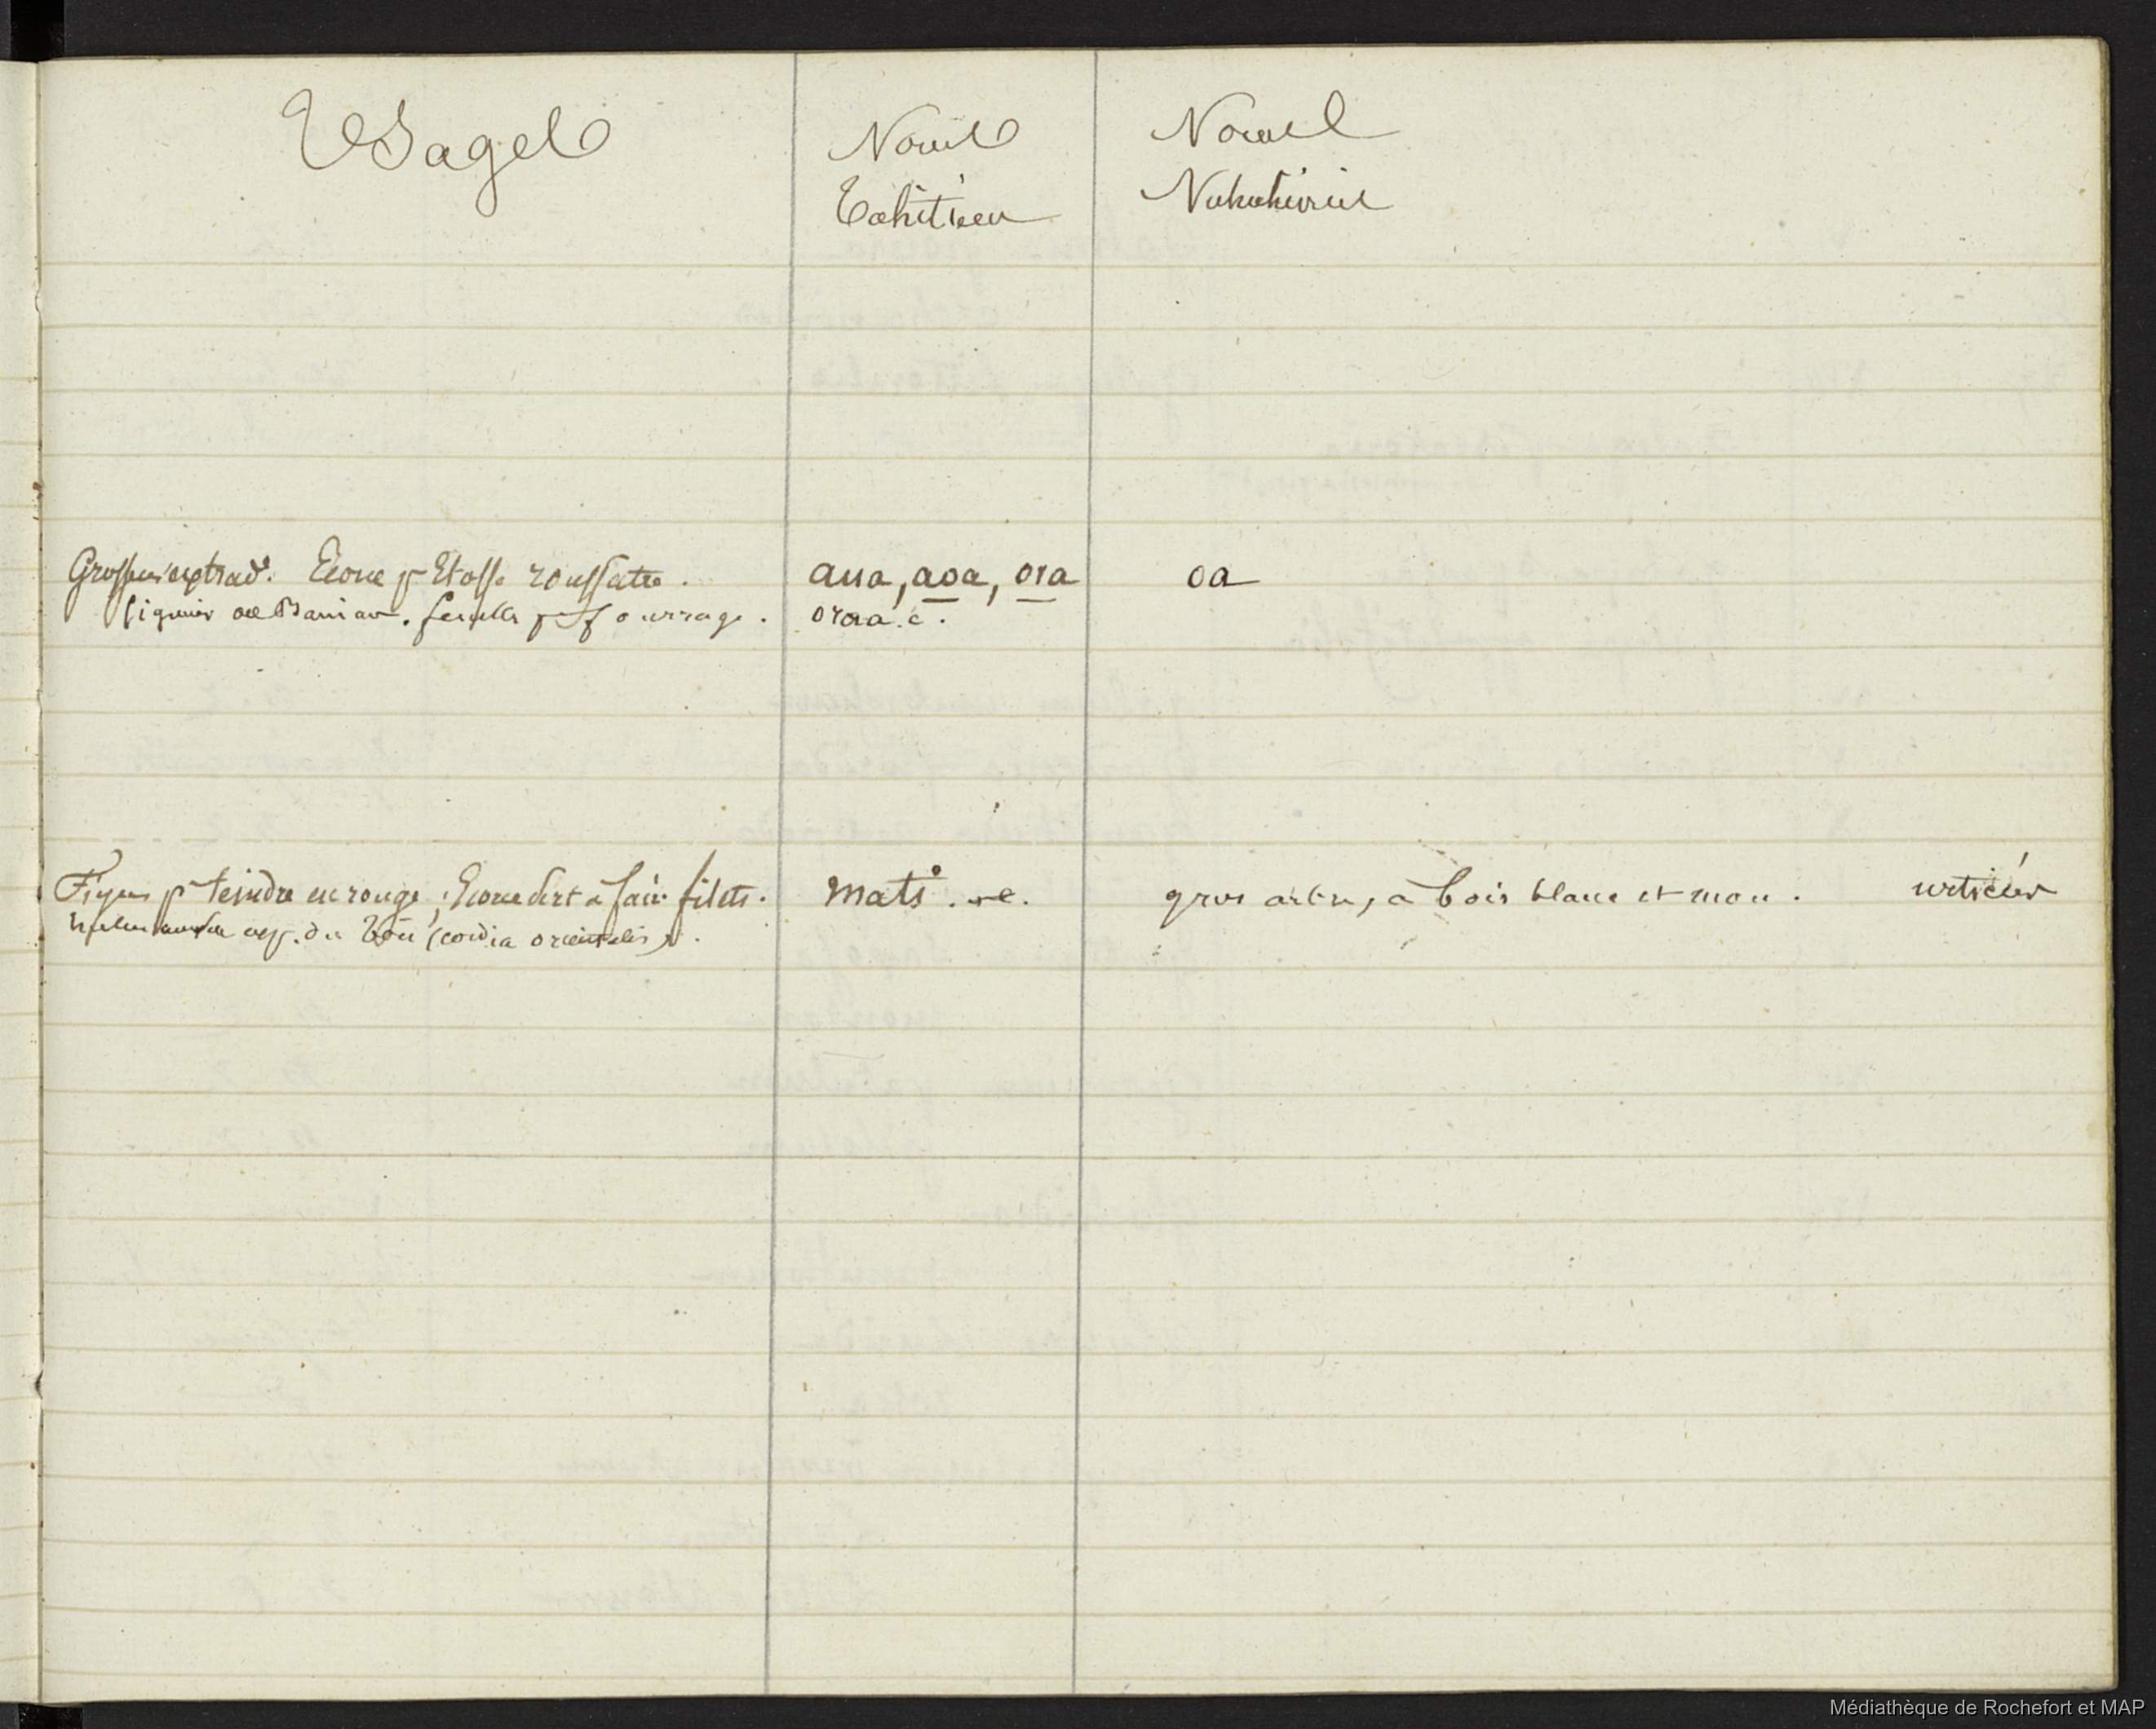 Usages
Noms
Tahitien
Noms
Nukuhivien
Grosseur extraord. Ecorce pr Etoffe roussatre.
figuier des Banian. feuilles pr fourrage.
aua, aoa, ora
oraa. c.
oa
Figues pr teindre en rouge; Ecorce sert à faire filets.
du Tou (cordia orientalis).
mati . c.
gros arbre, à bois blanc et mou.
urticées
Médiathèque de Rochefort et MAP